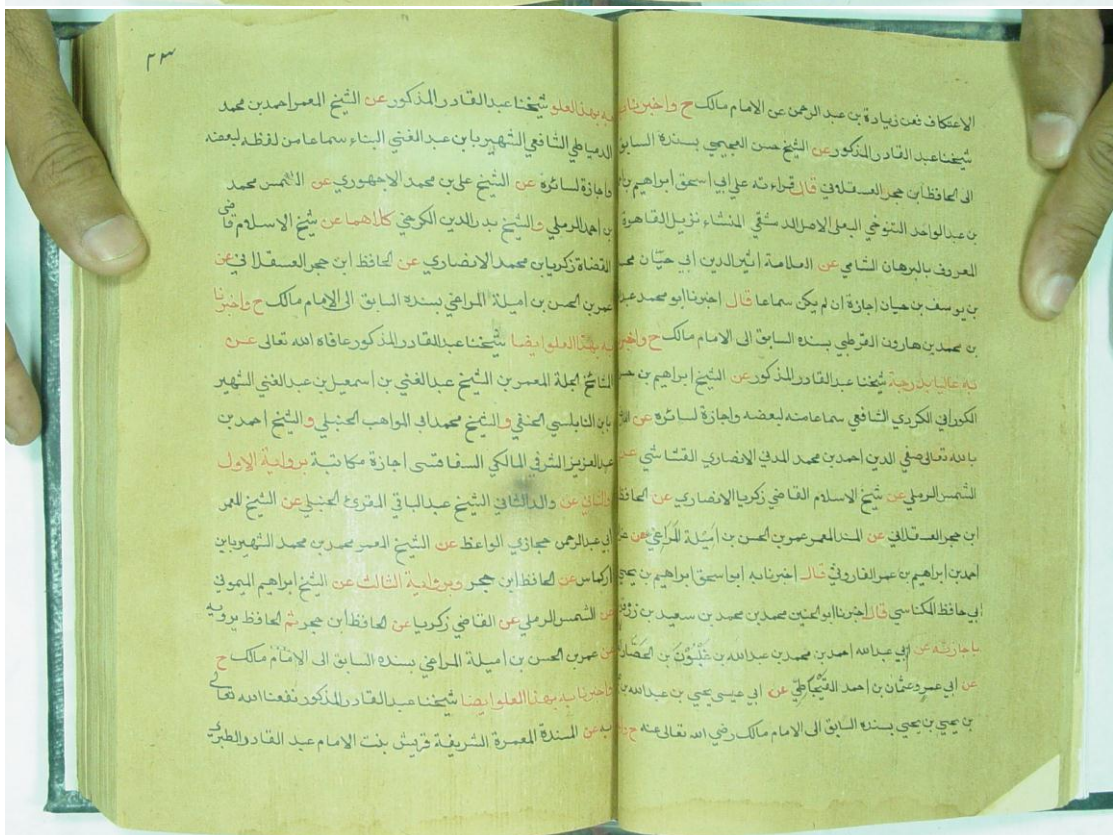 الاعتكاف فعن زيادة بن عبد الرحمن عن الامام مالك ح واخبرنا
شيخنا عبد القادر المذكور عن الشيخ حسن العجيمي بسنده السابق
الى الحافظ ابن حجر العسقلاني قال قراءته على ابي اسحق ابراهيم
بن عبد الواحد التنوخي البعلي الاصل الدمشقي المنشاء نزيل القاهرة
المعروف بالبرهان الشامي عن العلامة اثير الدين ابي حيان
بن يوسف بن حيان اجازة ان لم يكن سماعا قال اخبرنا ابو محمد
بن محمد بن هارون القرطبي بسنده السابق الى الامام مالك ح
به عاليا بدرجة شيخنا عبد القادر المذكور عن الشيخ ابراهيم بن
الكوراني الكردي الشافعي سماعا منه لبعضه واجازة لسائره عن
بالله تعالى صفي الدين احمد بن محمد المدني الانصاري القشاشي
الشمس الرملي عن شيخ الاسلام القاضي زكريا الانصاري عن الحافظ
ابن حجر العسقلاني عن المسند المعمر عمر بن الحسن بن اميلة المراغي عن
احمد بن ابراهيم بن عمر الفاروثي قال اخبرنا به ابو اسحق ابراهيم بن يحيى
ابي حافظ المكناسي قال اخبرنا ابو الحسين محمد بن محمد بن سعيد بن زرقون
باجازته عن ابي عبد الله احمد بن محمد بن عبد الله بن غلبون بن الحصار
عن ابي عمرو عثمان بن احمد القيجاطي عن ابي عيسى يحيى بن عبد الله
بن يحيى بن يحيى بسنده السابق الى الامام مالك رضي الله تعالى عنه ح
٢٣
به بهذا العلو شيخنا عبد القادر المذكور عن الشيخ المعمر احمد بن محمد
الدمياطي الشافعي الشهير بابن عبد الغني البناء سماعا من لفظه لبعضه
واجازة لسائره عن الشيخ علي بن محمد الاجهوري عن الشمس محمد
بن احمد الرملي والشيخ بدر الدين الكرخي كلاهما عن شيخ الاسلام قاضي
القضاة زكريا بن محمد الانصاري عن الحافظ ابن حجر العسقلاني عن
عمر بن الحسن بن اميلة المراغي بسنده السابق الى الامام مالك ح واخبرنا
به بهذا العلو ايضا شيخنا عبد القادر المذكور عافاه الله تعالى عن
المشائخ الجلة المعمر بن الشيخ عبد الغني بن اسمعيل بن عبد الغني الشهير
بابن النابلسي الحنفي والشيخ محمد ابي المواهب الحنبلي والشيخ احمد بن
عبد العزيز الشرفي المالكي السفاقسي اجازة مكاتبة برواية الاول
والثاني عن والد الثاني الشيخ عبد الباقي المقرئ الحنبلي عن الشيخ المعمر
ابي عبد الرحمن حجازي الواعظ عن الشيخ المعمر محمد بن محمد الشهير بابن
اركماس عن الحافظ ابن حجر وبرواية الثالث عن الشيخ ابراهيم الميموني
عن الشمس الرملي عن القاضي زكريا عن الحافظ ابن حجر ثم الحافظ يرويه
عن عمر بن الحسن بن اميلة المراغي بسنده السابق الى الامام مالك ح
واخبرنا به بهذا العلو ايضا شيخنا عبد القادر المذكور نفعنا الله تعالى
به عن المسندة المعمرة الشريفة قريش بنت الامام عبد القادر الطبري